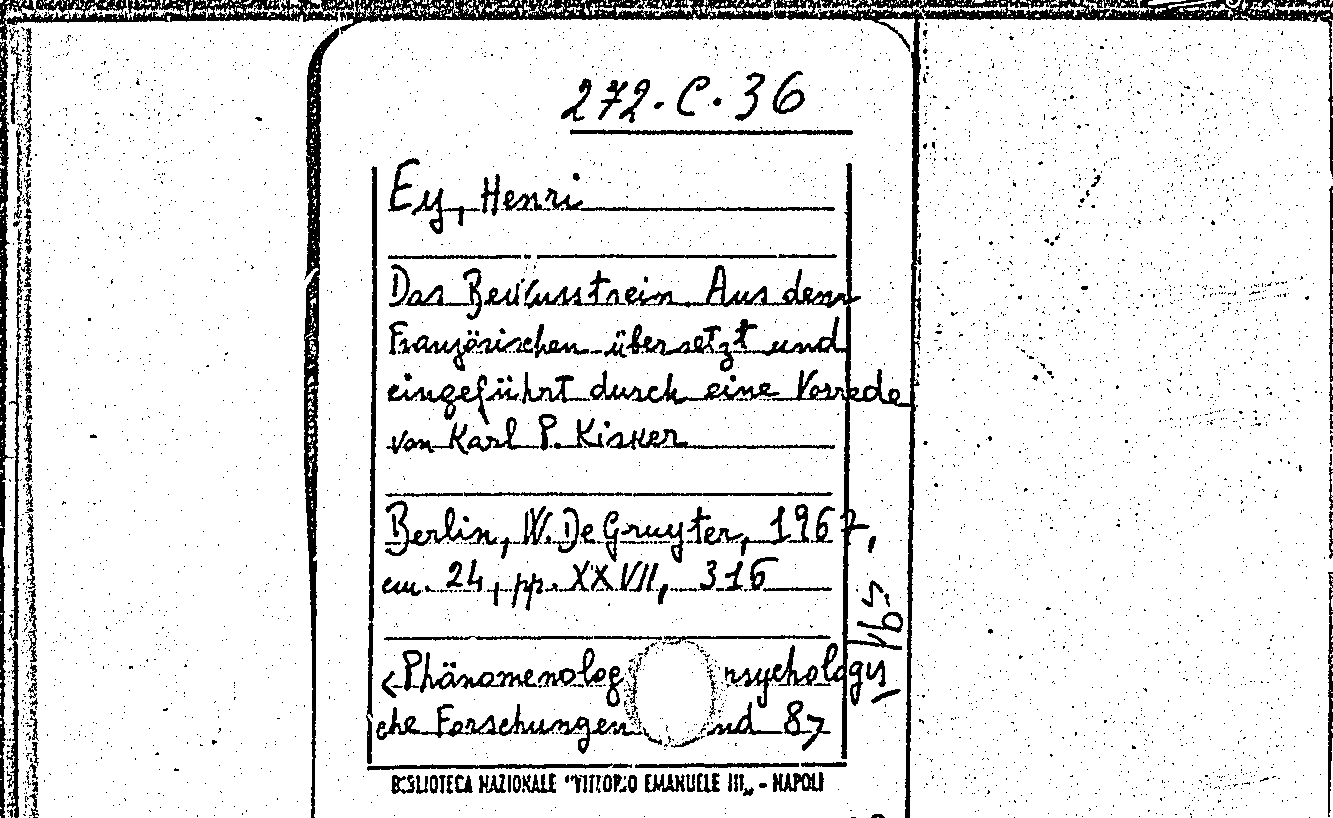 272.C.36
Ey, Henri
Das Bewusstsein. Aus dem
Französischen übersetzt und
eingeführt durch eine Vorrede
von Karl P. Kisker
Berlin, W. De Gruyter, 1967,
cm. 24, pp. XXVII, 316
<Phänomenolog psychologis
che Forschungen nd 8>
BIBLIOTECA NAZIONALE "VITTORIO EMANUELE III„ - NAPOLI